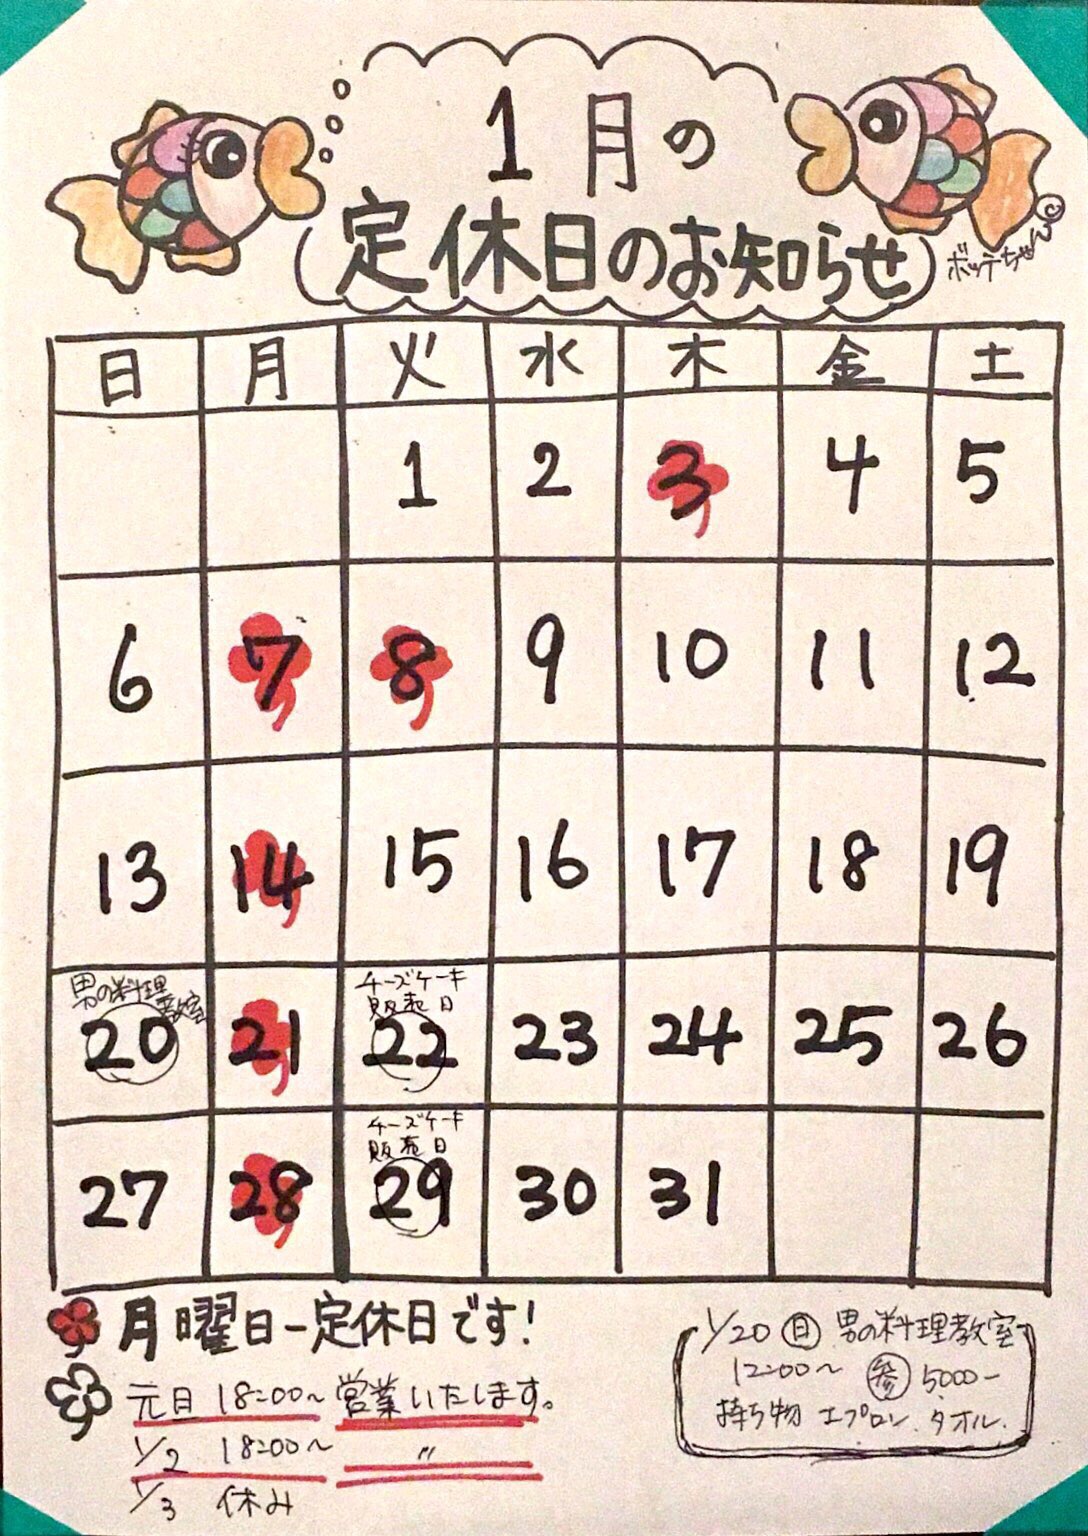 1月の
定休日のお知らせ
©ボッテちゃん
日 月 火 水 木 金 土
1 2 3 4 5
6 7 8 9 10 11 12
13 14 15 16 17 18 19
男の料理教室
チーズケーキ
販売日
20 21 22 23 24 25 26
チーズケーキ
販売日
27 28 29 30 31
月曜日ー定休日です!
元日 18:00〜営業いたします。
1/2 18:00〜 〃
1/3 休み
1/20(日)男の料理教室
12:00〜 参 5000ー
持ち物 エプロン.タオル.